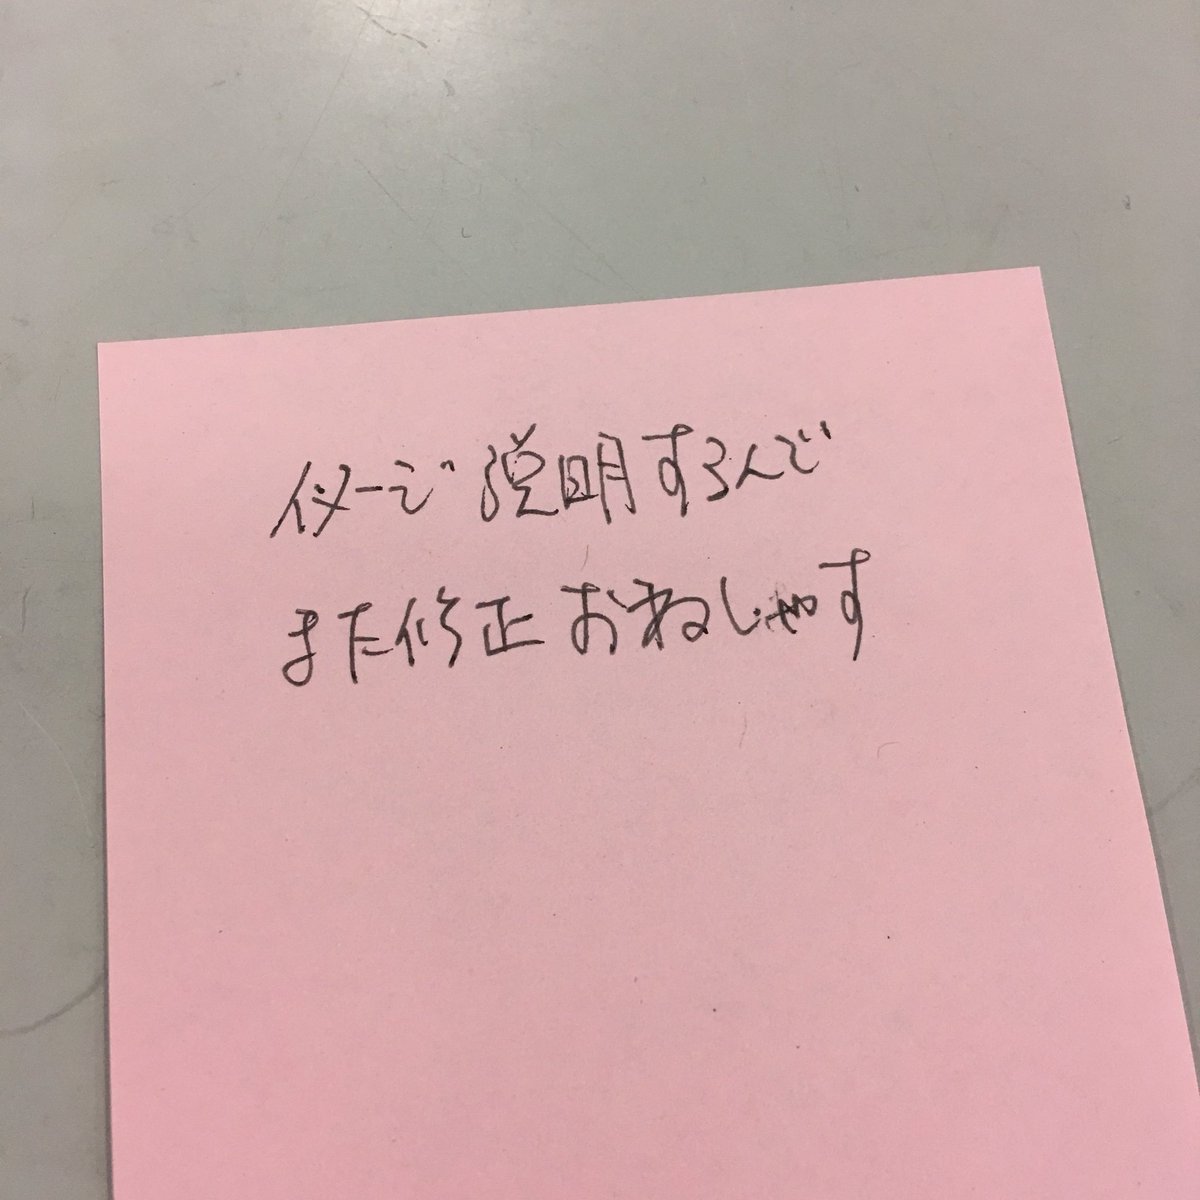 イメーで説明するんで
また修正おねしゃす